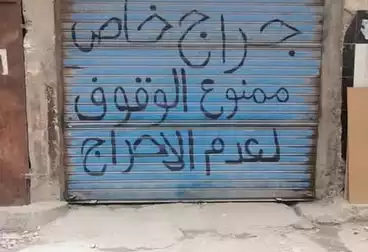 جراج خاص
ممنوع الوقوف
لعدم الاحراج